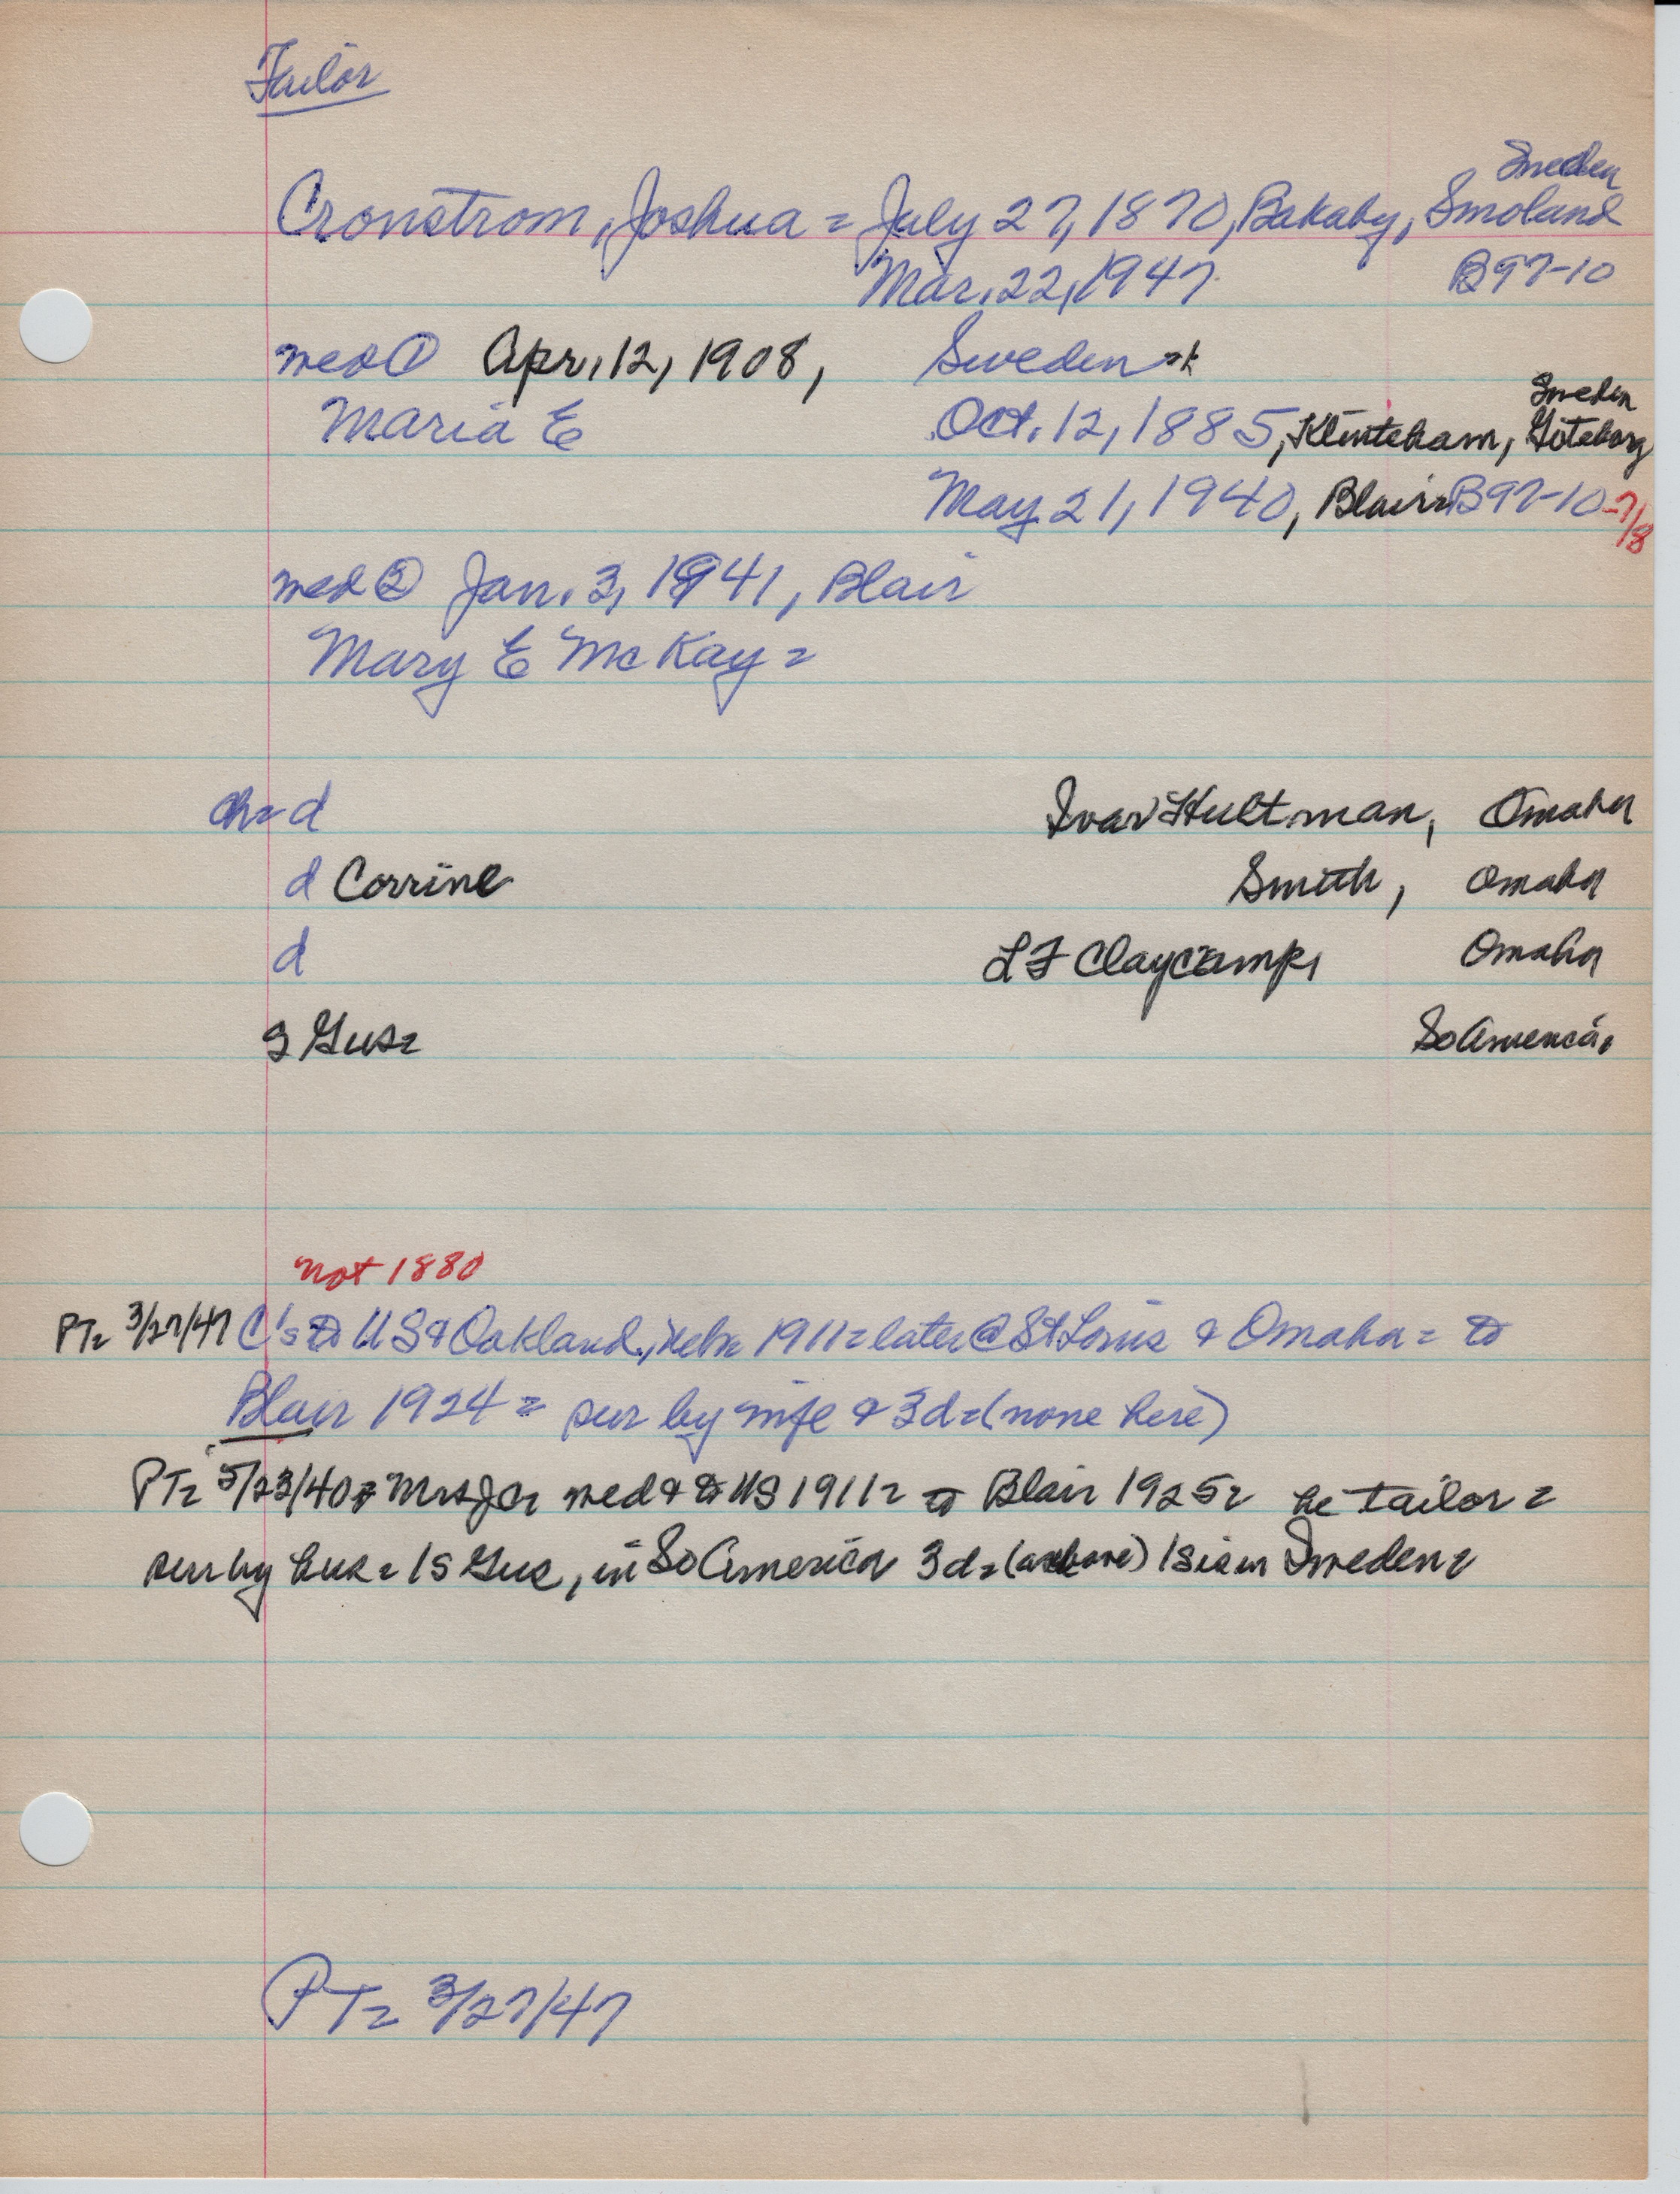 Tailor
Sweden
Cronstrom, Joshua = July 27, 1870, Bakaby, Smoland
Mar. 22, 1947. B97-10
med ① Apr. 12, 1908, Sweden =
Sweden
Maria E Oct. 12, 1885, Klinteham, Göteborg
May 21, 1940, Blair = B97-10-7/8
med ② Jan. 3, 1941, Blair
Mary E McKay =
ch = d Ivar Hultman, Omaha
d Corrine Smith, Omaha
d L F Claycamp, Omaha
s Gus = So America,
not 1880
PT= 3/27/47 C's to US & Oakland, Neb = 1911 = later @ St Louis & Omaha = to
Blair 1924 = sur by wife & 3d = (none here)
PT= 5/23/40 = Mrs J C = med & to US 1911 = to Blair 1925 = he tailor =
sur by hus = 1s Gus, in So America 3d = (as above) 1 sis in Sweden =
PT= 3/27/47